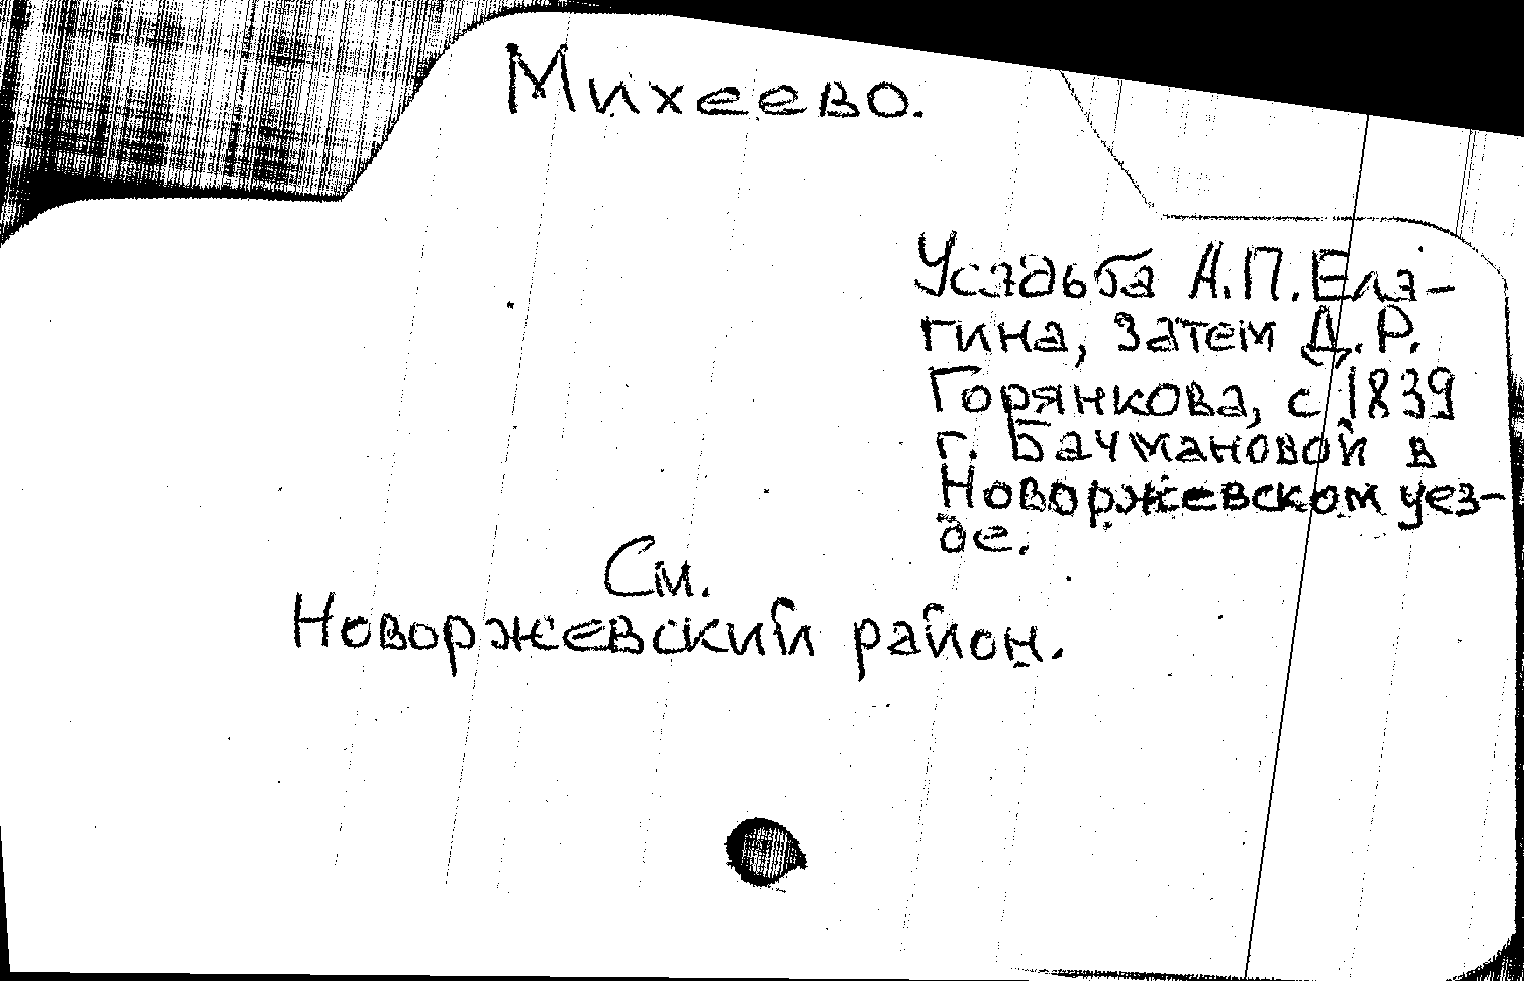 Михеево.
Усадьба А.П. Ела-
гина, затем Д.Р.
Горянкова, с 1839
г. Бачмановой в
Новоржевском уез-
де.
См.
Новоржевский район.